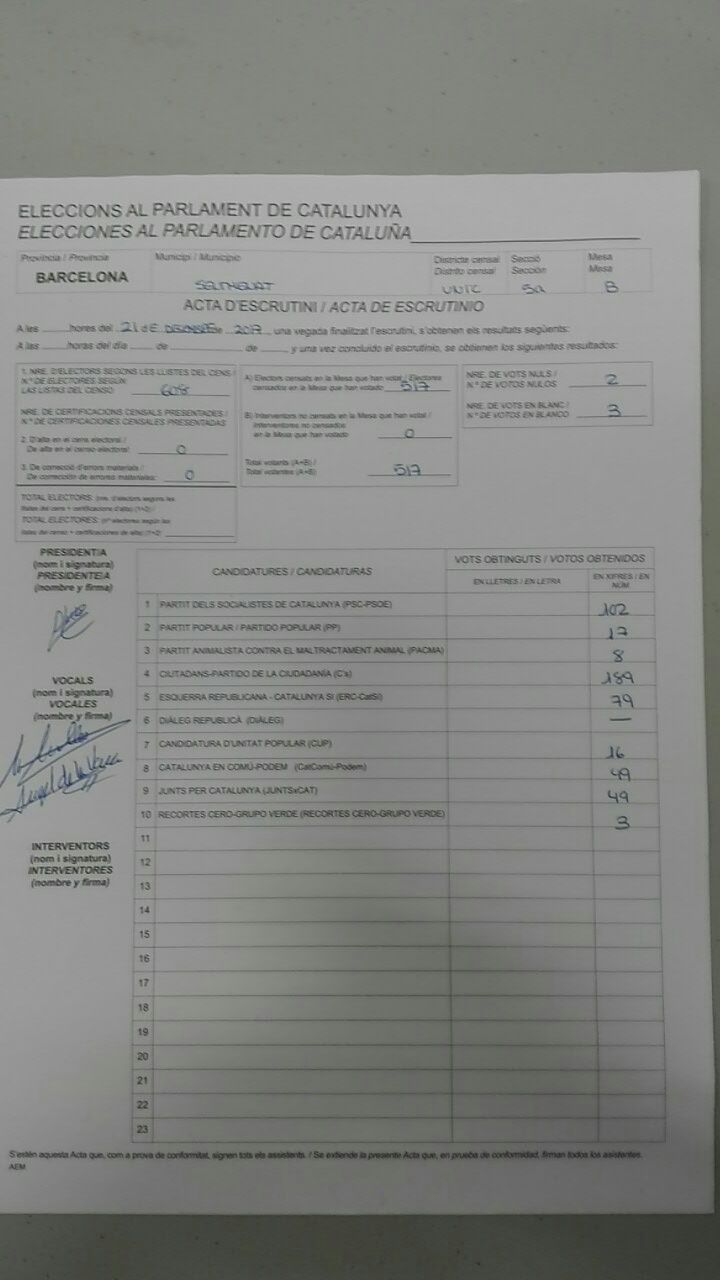 ELECCIONS AL PARLAMENT DE CATALUNYA
ELECCIONES AL PARLAMENTO DE CATALUÑA
Província / Provincia
Municipi / Municipio
Districte censal
Distrito censal
Secció
Sección
Mesa
Mesa
BARCELONA
B
ACTA D'ESCRUTINI / ACTA DE ESCRUTINIO
A les hores del 21 de de 2017, una vegada finalitzat l'escrutini, s'obtenen els resultats següents:
A las horas del día de de y una vez concluido el escrutinio, se obtienen los siguientes resultados:
1. NRE. D'ELECTORS SEGONS LES LLISTES DEL CENS /
N.º DE ELECTORES SEGÚN
LAS LISTAS DEL CENSO 608
NRE. DE CERTIFICACIONS CENSALS PRESENTADES /
N.º DE CERTIFICACIONES CENSALES PRESENTADAS
2. D'alta en el cens electoral /
De alta en el censo electoral: 0
3. De correcció d'errors materials /
De corrección de errores materiales: 0
TOTAL ELECTORS: (nre. d'electors segons les
llistes del cens + certificacions d'alta) (1+2) /
TOTAL ELECTORES: (nº electores según las
listas del censo + certificaciones de alta) (1+2)
A) Electors censats en la Mesa que han votat / Electores
censados en la Mesa que han votado 517
B) Interventors no censats en la Mesa que han votat /
Interventores no censados
en la Mesa que han votado 0
Total votants (A+B) /
Total votantes (A+B) 517
NRE. DE VOTS NULS /
N.º DE VOTOS NULOS 2
NRE. DE VOTS EN BLANC /
N.º DE VOTOS EN BLANCO 3
PRESIDENT/A
(nom i signatura)
PRESIDENTE/A
(nombre y firma)
VOCALS
(nom i signatura)
VOCALES
(nombre y firma)
Angel de la
INTERVENTORS
(nom i signatura)
INTERVENTORES
(nombre y firma)
CANDIDATURES / CANDIDATURAS
VOTS OBTINGUTS / VOTOS OBTENIDOS
EN LLETRES / EN LETRA
EN XIFRES / EN
NÚM
1 PARTIT DELS SOCIALISTES DE CATALUNYA (PSC-PSOE) 102
2 PARTIT POPULAR / PARTIDO POPULAR (PP) 17
3 PARTIT ANIMALISTA CONTRA EL MALTRACTAMENT ANIMAL (PACMA) 8
4 CIUTADANS-PARTIDO DE LA CIUDADANÍA (C's) 189
5 ESQUERRA REPUBLICANA - CATALUNYA SÍ (ERC-CatSí) 79
6 DIÀLEG REPUBLICÀ (DIÀLEG) —
7 CANDIDATURA D'UNITAT POPULAR (CUP) 16
8 CATALUNYA EN COMÚ-PODEM (CatComú-Podem) 49
9 JUNTS PER CATALUNYA (JUNTSxCAT) 49
10 RECORTES CERO-GRUPO VERDE (RECORTES CERO-GRUPO VERDE) 3
11
12
13
14
15
16
17
18
19
20
21
22
23
S'estén aquesta Acta que, com a prova de conformitat, signen tots els assistents. / Se extiende la presente Acta que, en prueba de conformidad, firman todos los asistentes.
AEM